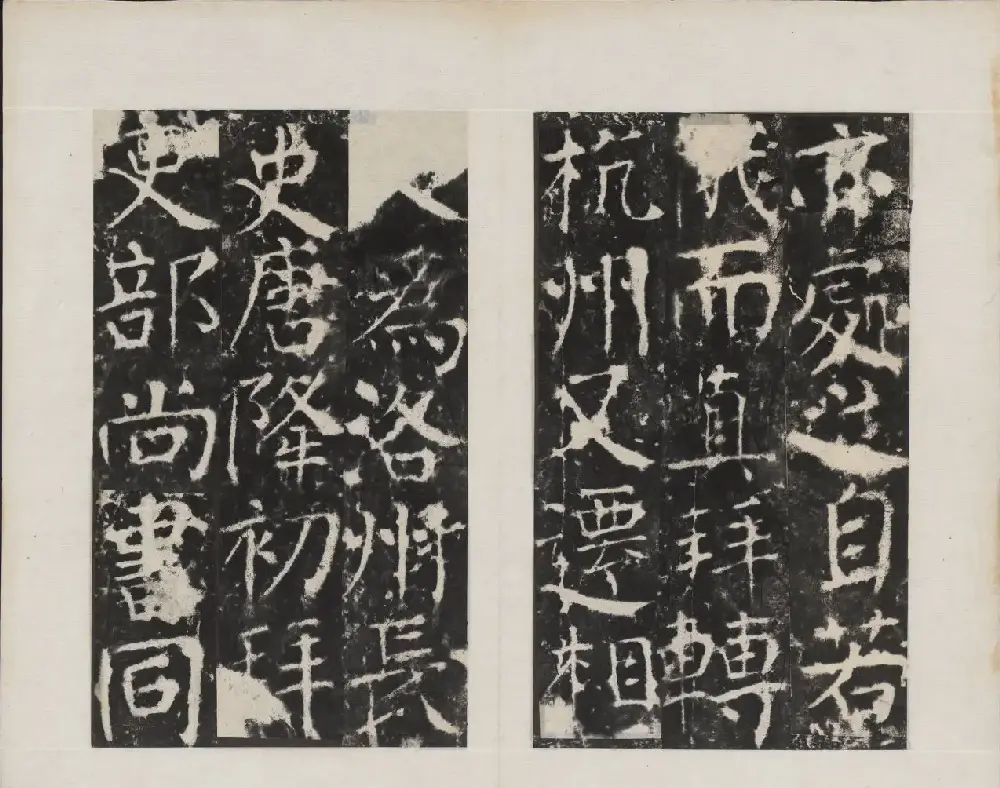 亦處之自若
而真拜轉
杭州又遷相
為洛州長
史唐隆初拜
吏部尚書同